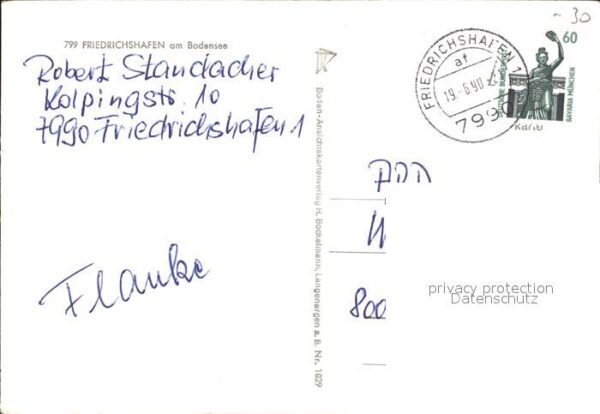 799 FRIEDRICHSHAFEN am Bodensee
Robert Standacher
Kolpingstr. 10
7990 Friedrichshafen 1
Flanke
Boden-Ansichtskartenverlag H. Bockelmann, Langenargen a. B. Nr. 1029
-30
FRIEDRICHSHAFEN 1
af
19.-6.90
799
60
DEUTSCHE BUNDESPOST
BAVARIA MÜNCHEN
800
privacy protection
Datenschutz